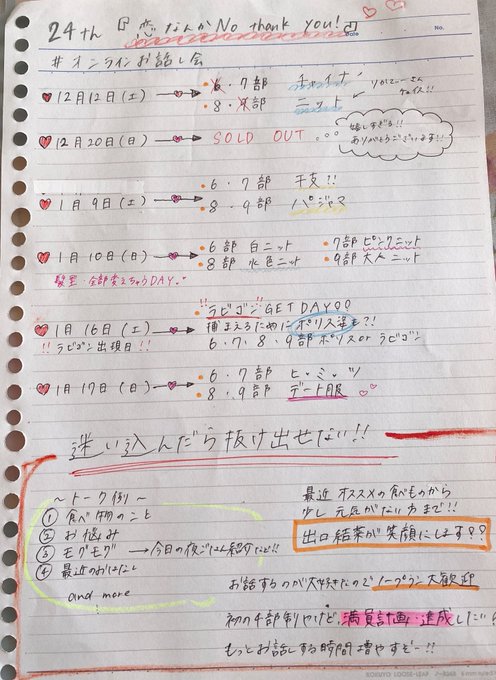 24th 『恋なんかNo thank you!』
Date
No.
#オンラインお話し会
12月12日(土) → 6・7部 チャイナ
8・9部 ニット
りかてぃーさん
12月20日(日) → SOLD OUT ...
嬉しすぎる!!
ありがとうございます!!
1月9日(土) → 6・7部 干支!!
8・9部 パジャマ
1月10日(日) → 6部 白ニット ・7部 ピンクニット
8部 水色ニット ・9部 大人ニット
髪型・全部変えちゃうDAY.
!!ラビゴン GET DAY
1月16日(土) → 捕まえるためにポリス姿も?!
!!ラビゴン出現日!! 6・7・8・9部 ポリス or ラビゴン
1月17日(日) → 6・7部 ヒ・ミ・ツ
8・9部 デート服
迷い込んだら抜け出せない!!
~トーク例~
① 食べ物のこと
② お悩み
③ モグモグ → 今日の夜ごはん紹介など!!
④ 最近のおはなし
and more
最近オススメの食べものから
少し元気がない方まで!!
出口結菜が笑顔にします??
お話するのが大好きなのでノープラン大歓迎
初の4部制やけど、満員計画・達成したい!
もっとお話しする時間増やすぞー!!
KOKUYO LOOSE-LEAF